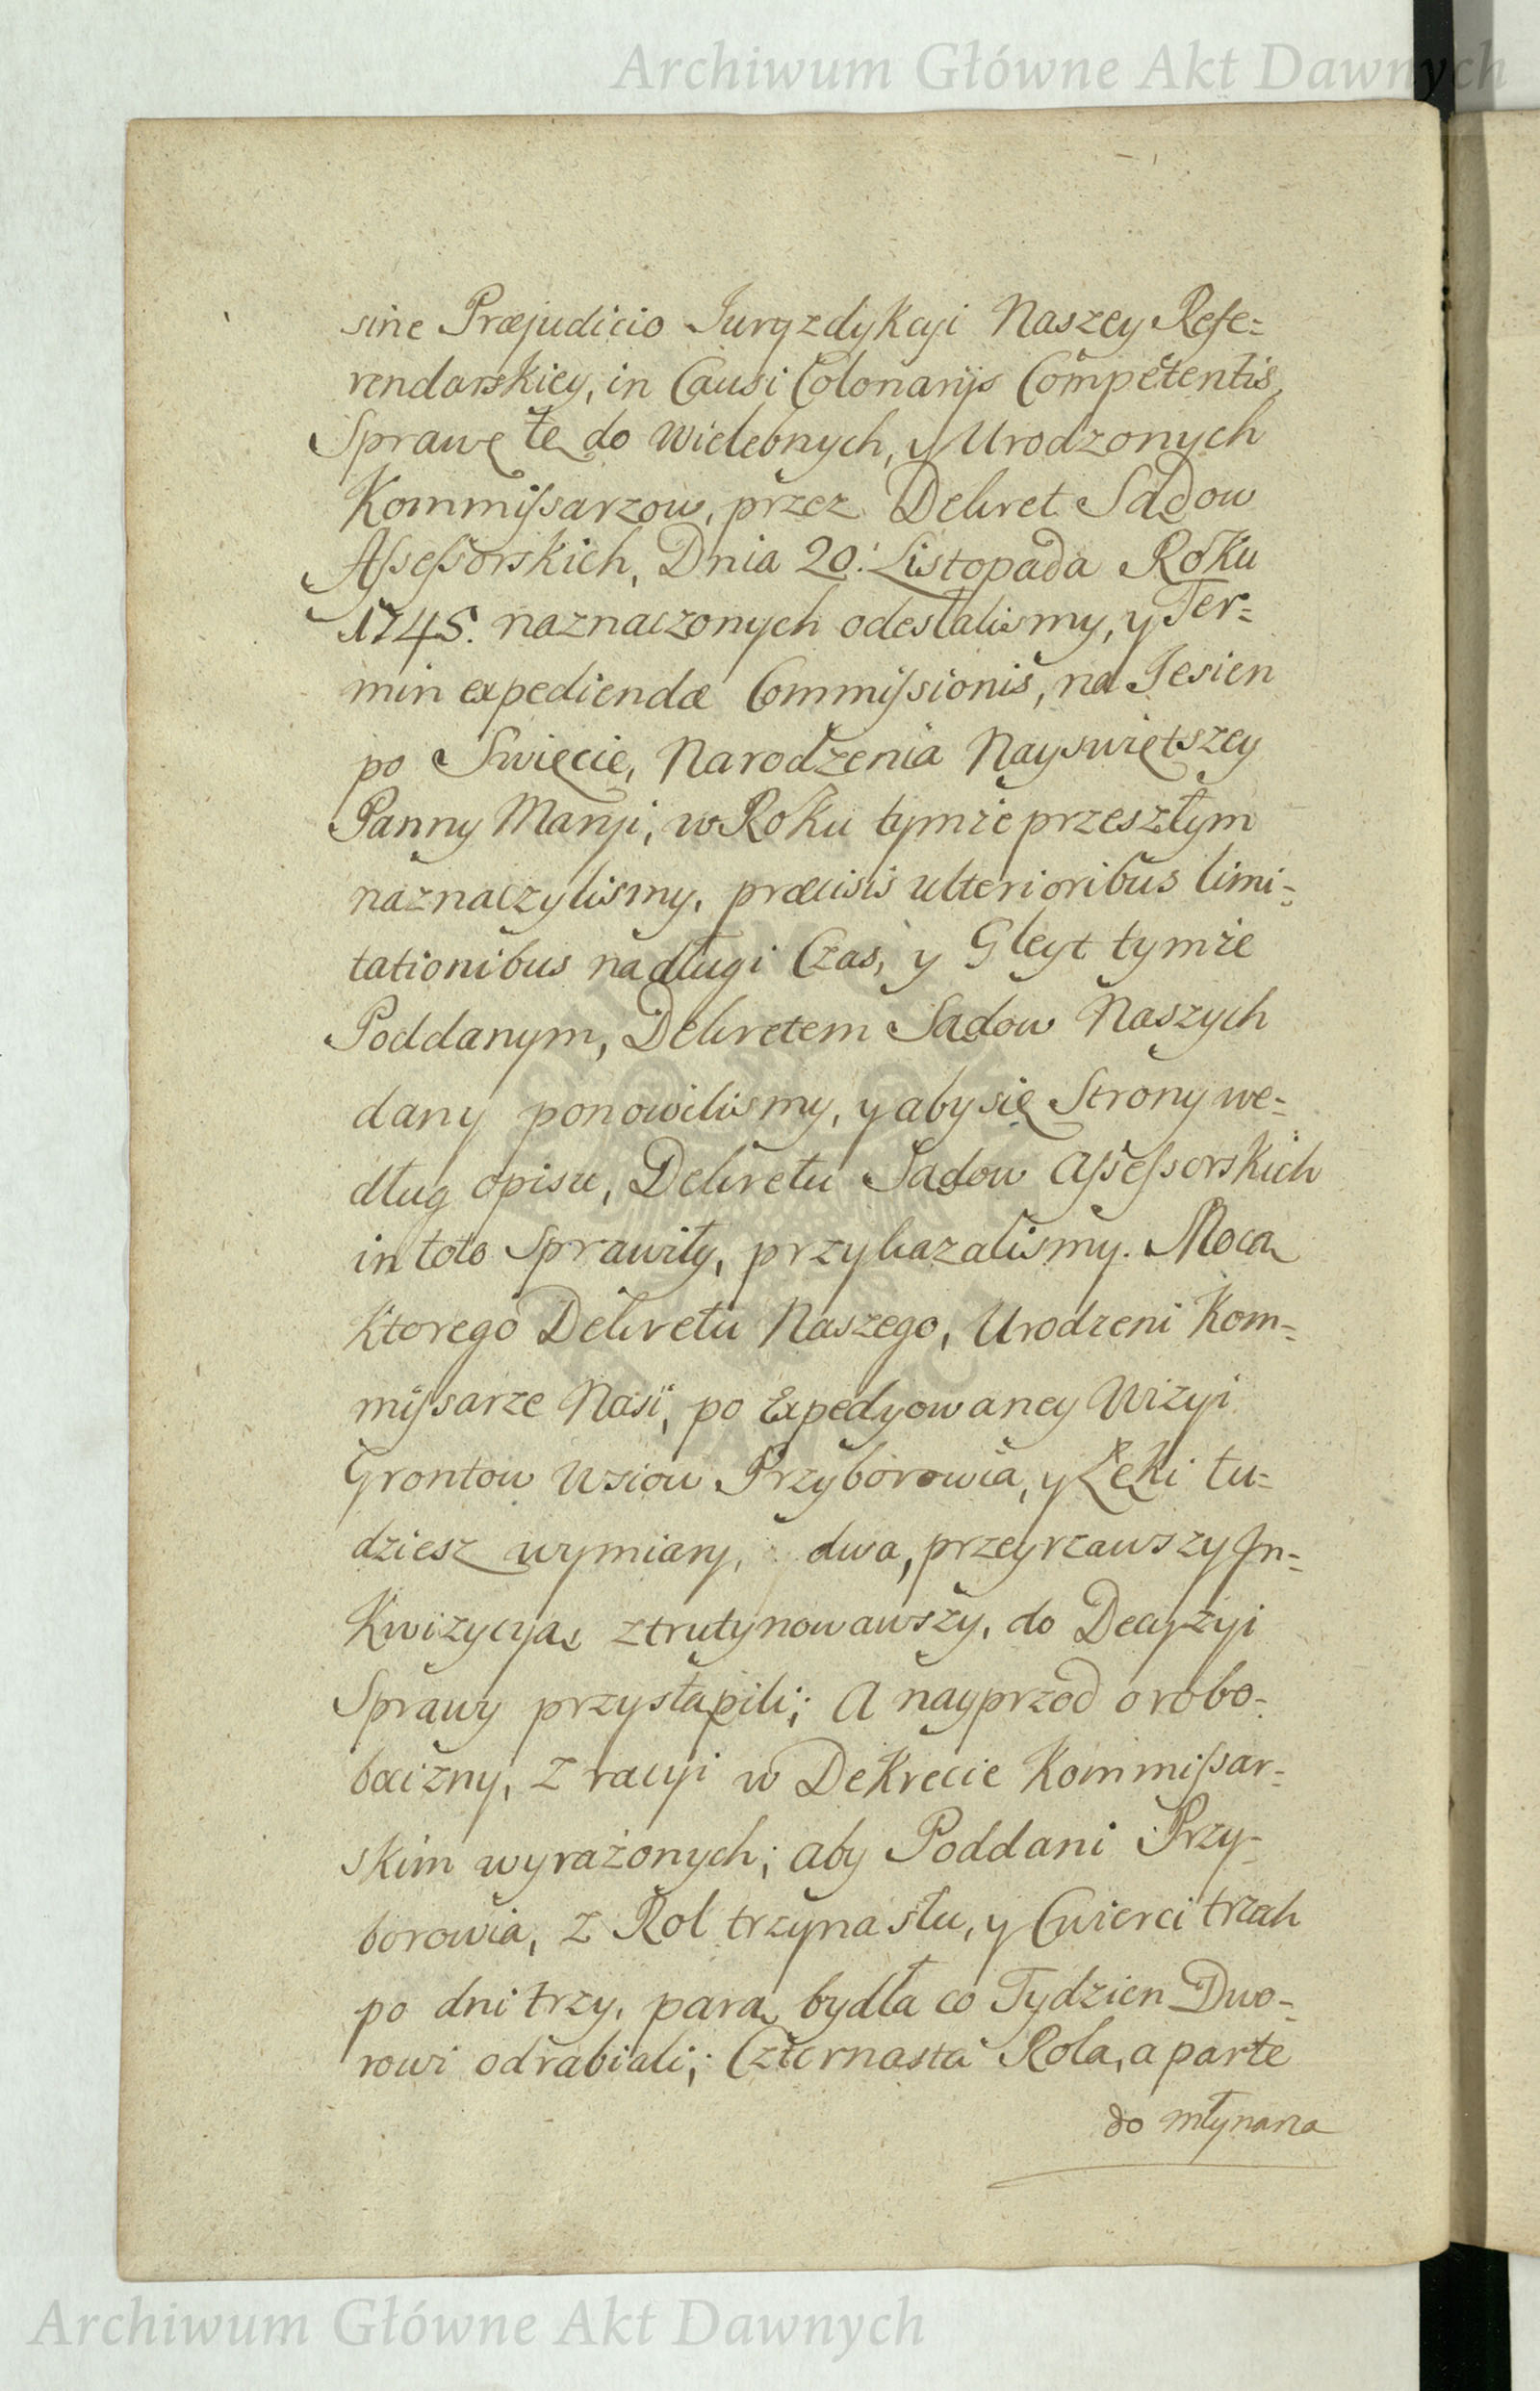 Archiwum Główne Akt Dawnych
sine Præjudicio Juryzdykcyi Naszey Refe=
rendarskiey, in Causi Colonarijs Competentis,
Sprawę tę do Wielebnych, y Urodzonych
Kommissarzow, przez Dekret Sądow
Assessorskich, Dnia 20. Listopada Roku
1745. naznaczonych odesłalismy, y Ter=
min expediendæ Commissionis, na Jesien
po Swięcie, Narodzenia Nayswiętszey
Panny Maryi, w Roku tymże przeszłym
naznaczylismy, præcisis ulterioribus limi=
tationibus na długi Czas, y Gleyt tymże
Poddanym, Dekretem Sądow Naszych
dany ponowilismy, y aby się Strony we=
dług opisu, Dekretu Sądow Assessorskich
in toto Sprawiły, przykazalismy. Mocą
Ktorego Dekretu Naszego, Urodzeni Kom=
missarze Nasi, po Expedyowaney Wizyi
Grontow Wsiow Przyborowia, y Łęki tu=
dziesz wymiary, dwa, przeyrzawszy In=
Kwizycyą ztrutynowawszy, do Decyzyi
Sprawy przystąpili; A nayprzod o robo=
bocizny, z racyi w Dekrecie Kommissar=
skim wyrażonych; aby Poddani Przy=
borowia, z Rol trzynastu, y Cwierci trzech
po dni trzy, parą bydła co Tydzien Dwo=
rowi odrabiali; Czternasta Rola, a parte
do młynarza
Archiwum Główne Akt Dawnych